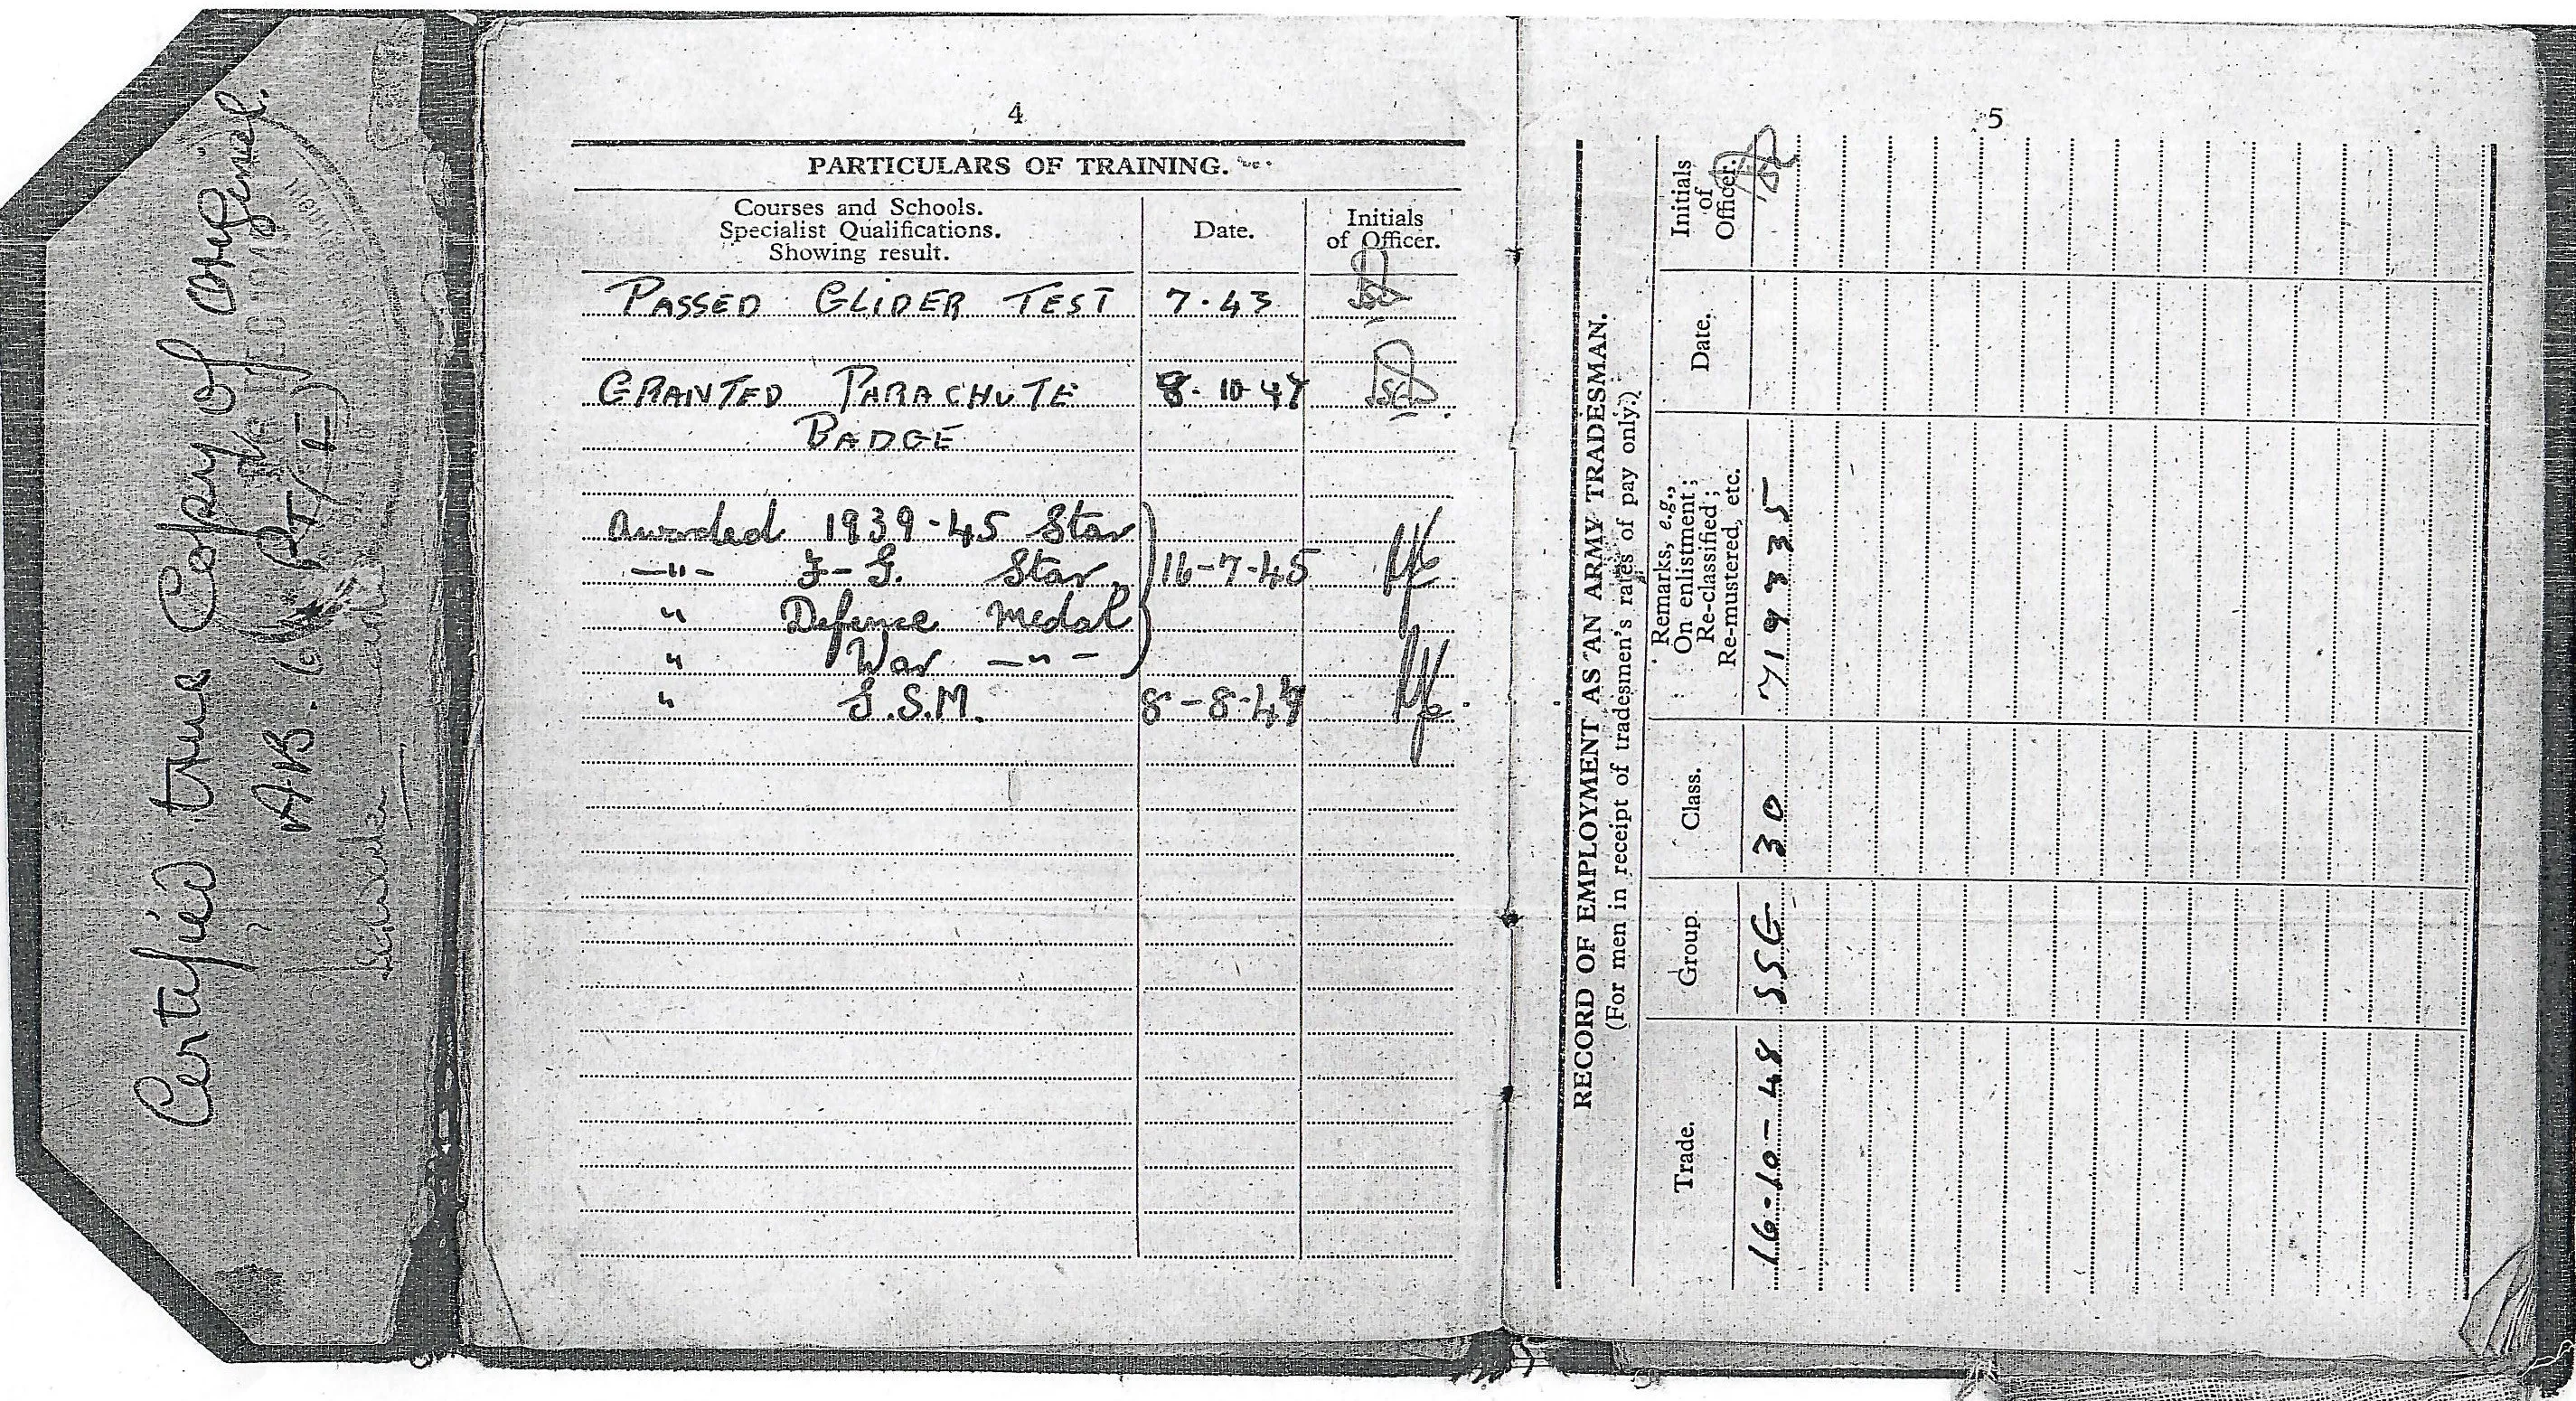 Certified true Copy of Original.
AB. 64 (PT I)
4
PARTICULARS OF TRAINING.
Courses and Schools. Specialist Qualifications. Showing result.
Date.
Initials of Officer.
PASSED GLIDER TEST 7.43
GRANTED PARACHUTE 8-10-47
BADGE
Awarded 1939-45 Star
—"— F-G. Star 16-7-45
" Defence Medal
" War —"—
" G.S.M. 8-8-47
5
RECORD OF EMPLOYMENT AS AN ARMY TRADESMAN.
(For men in receipt of tradesmen's rates of pay only.)
Trade.
Group.
Class.
Remarks, e.g., On enlistment; Re-classified; Re-mustered, etc.
Date.
Initials of Officer.
16-10-48 SSG 30 719335